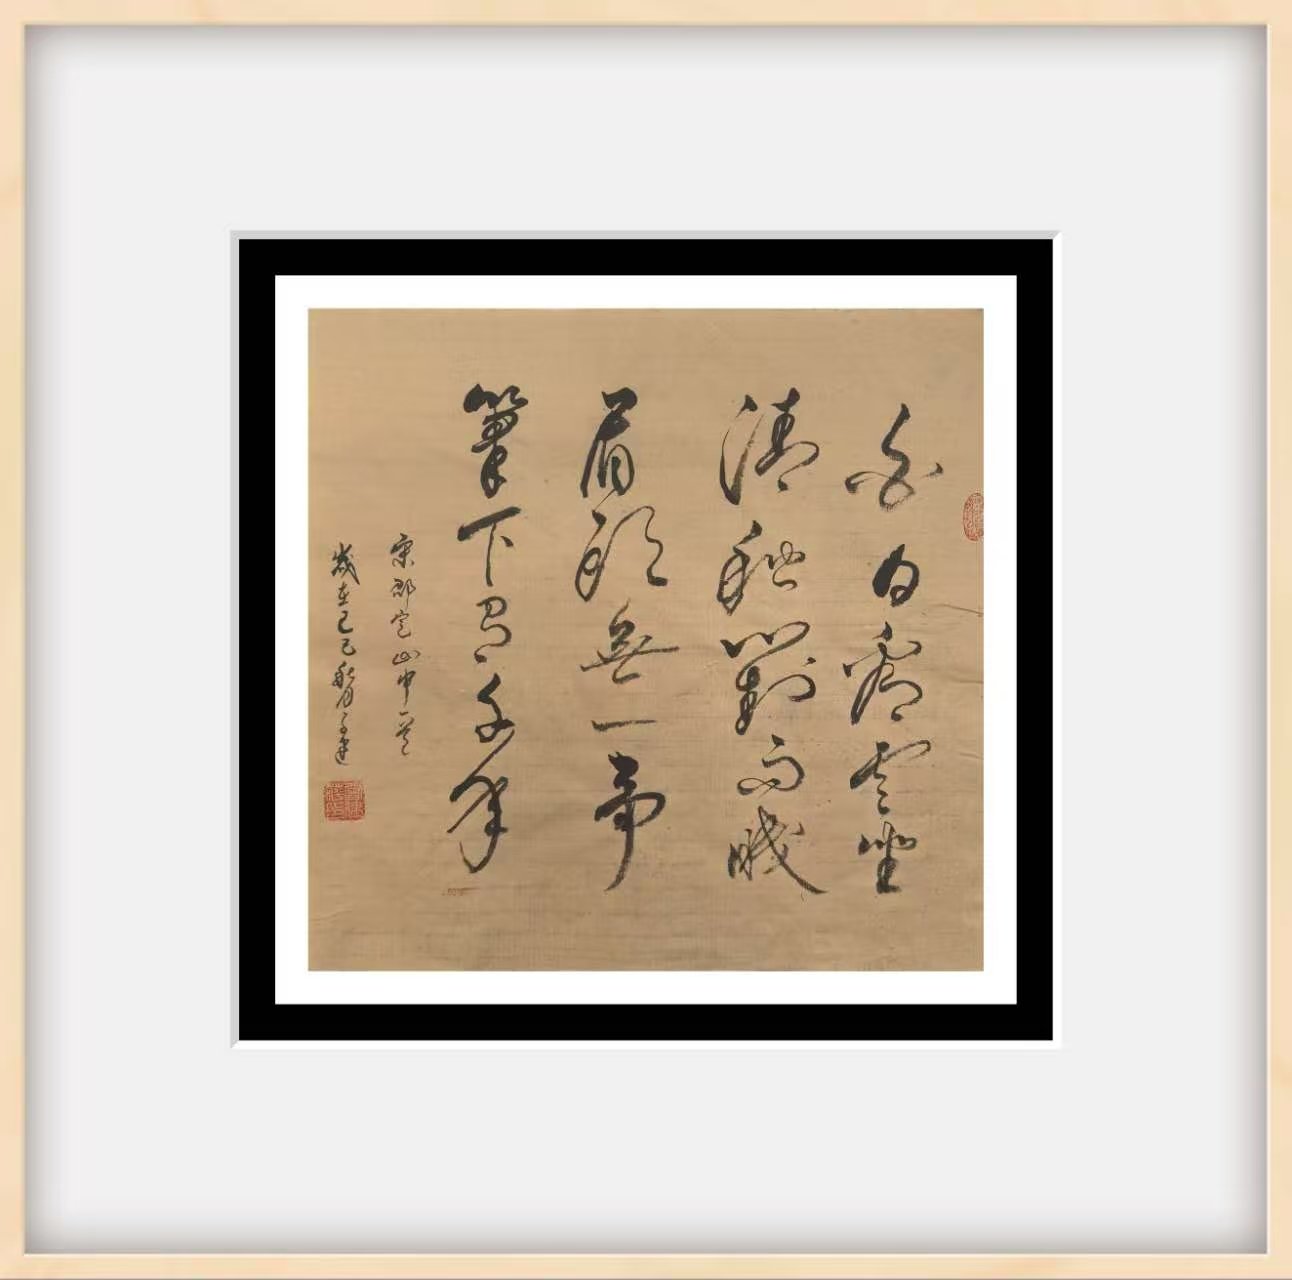 白日看雲坐
清秋對雨眠
眉頭無一事
筆下有千年
宋邵定山中一首
歲在己巳秋月